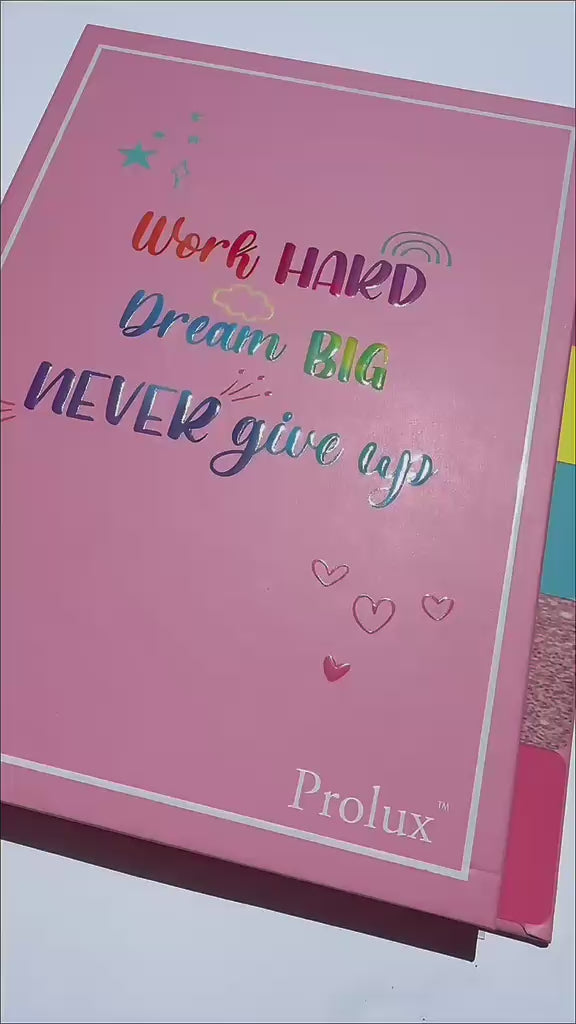 Work HARD
Dream BIG
NEVER give up
Prolux™